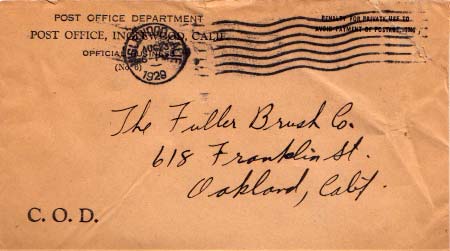 POST OFFICE DEPARTMENT
POST OFFICE, INGLEWOOD, CALIF.
OFFICIAL BUSINESS
(No. 6)
INGLEWOOD, CALIF.
AUG
6 PM
1929
PENALTY FOR PRIVATE USE TO
AVOID PAYMENT OF POSTAGE, $300
The Fuller Brush Co.
618 Franklin St.
Oakland, Calif.
C. O. D.